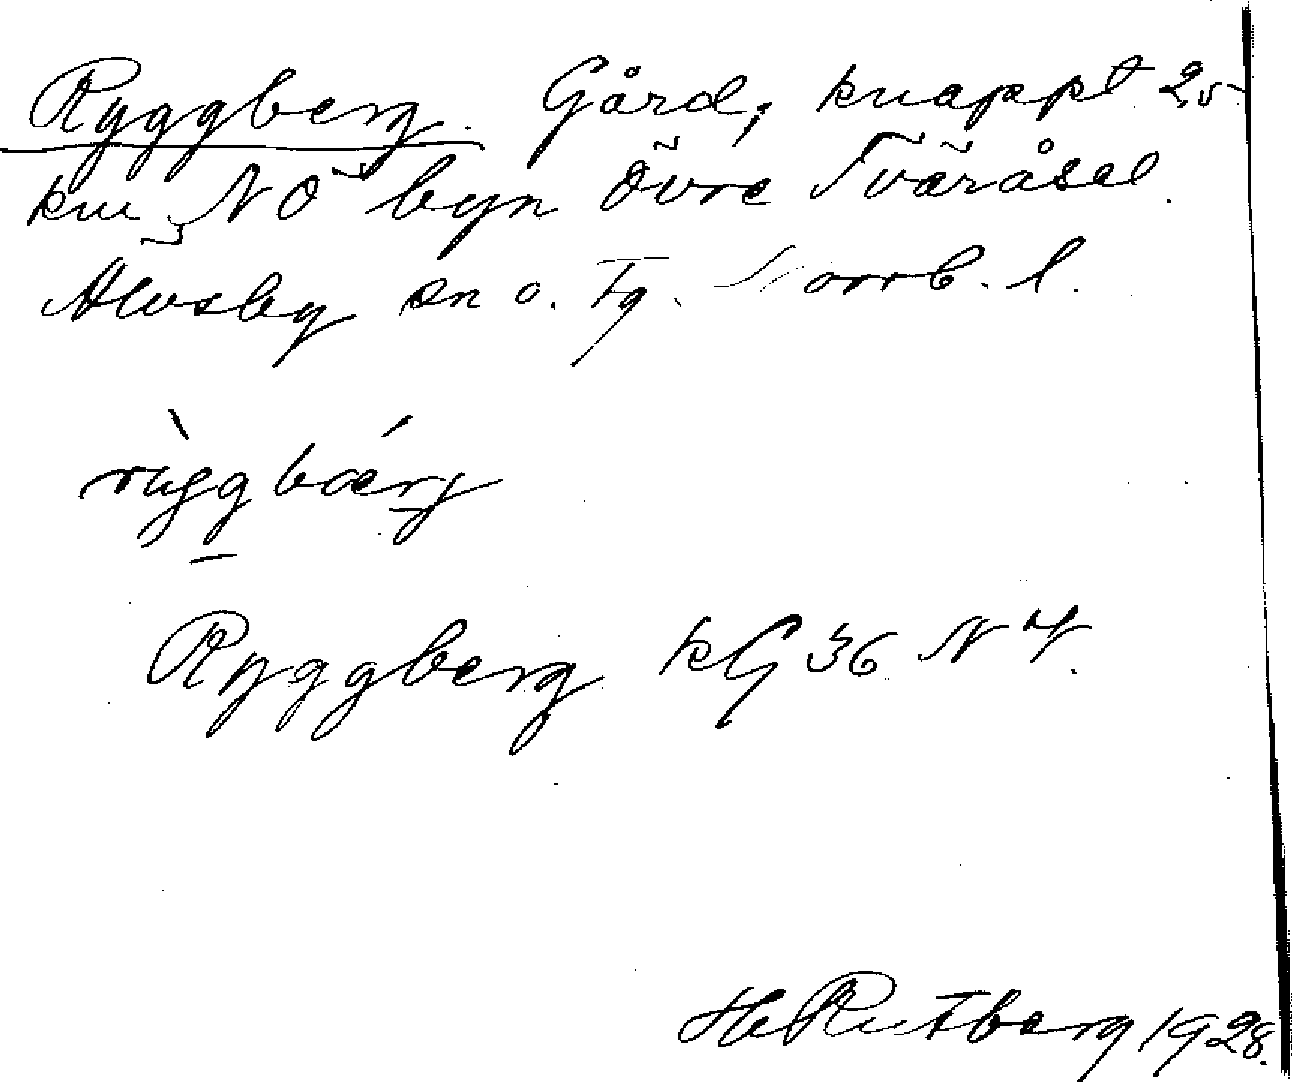 Ryggberg. Gård, knappt 2,5
km NÖ byn Övre Tväråsel.
Älvsby sn o. tg. Norrb. l.
rùggbǽrj
Ryggberg kG 36 N 4.
H Rutberg 1928.